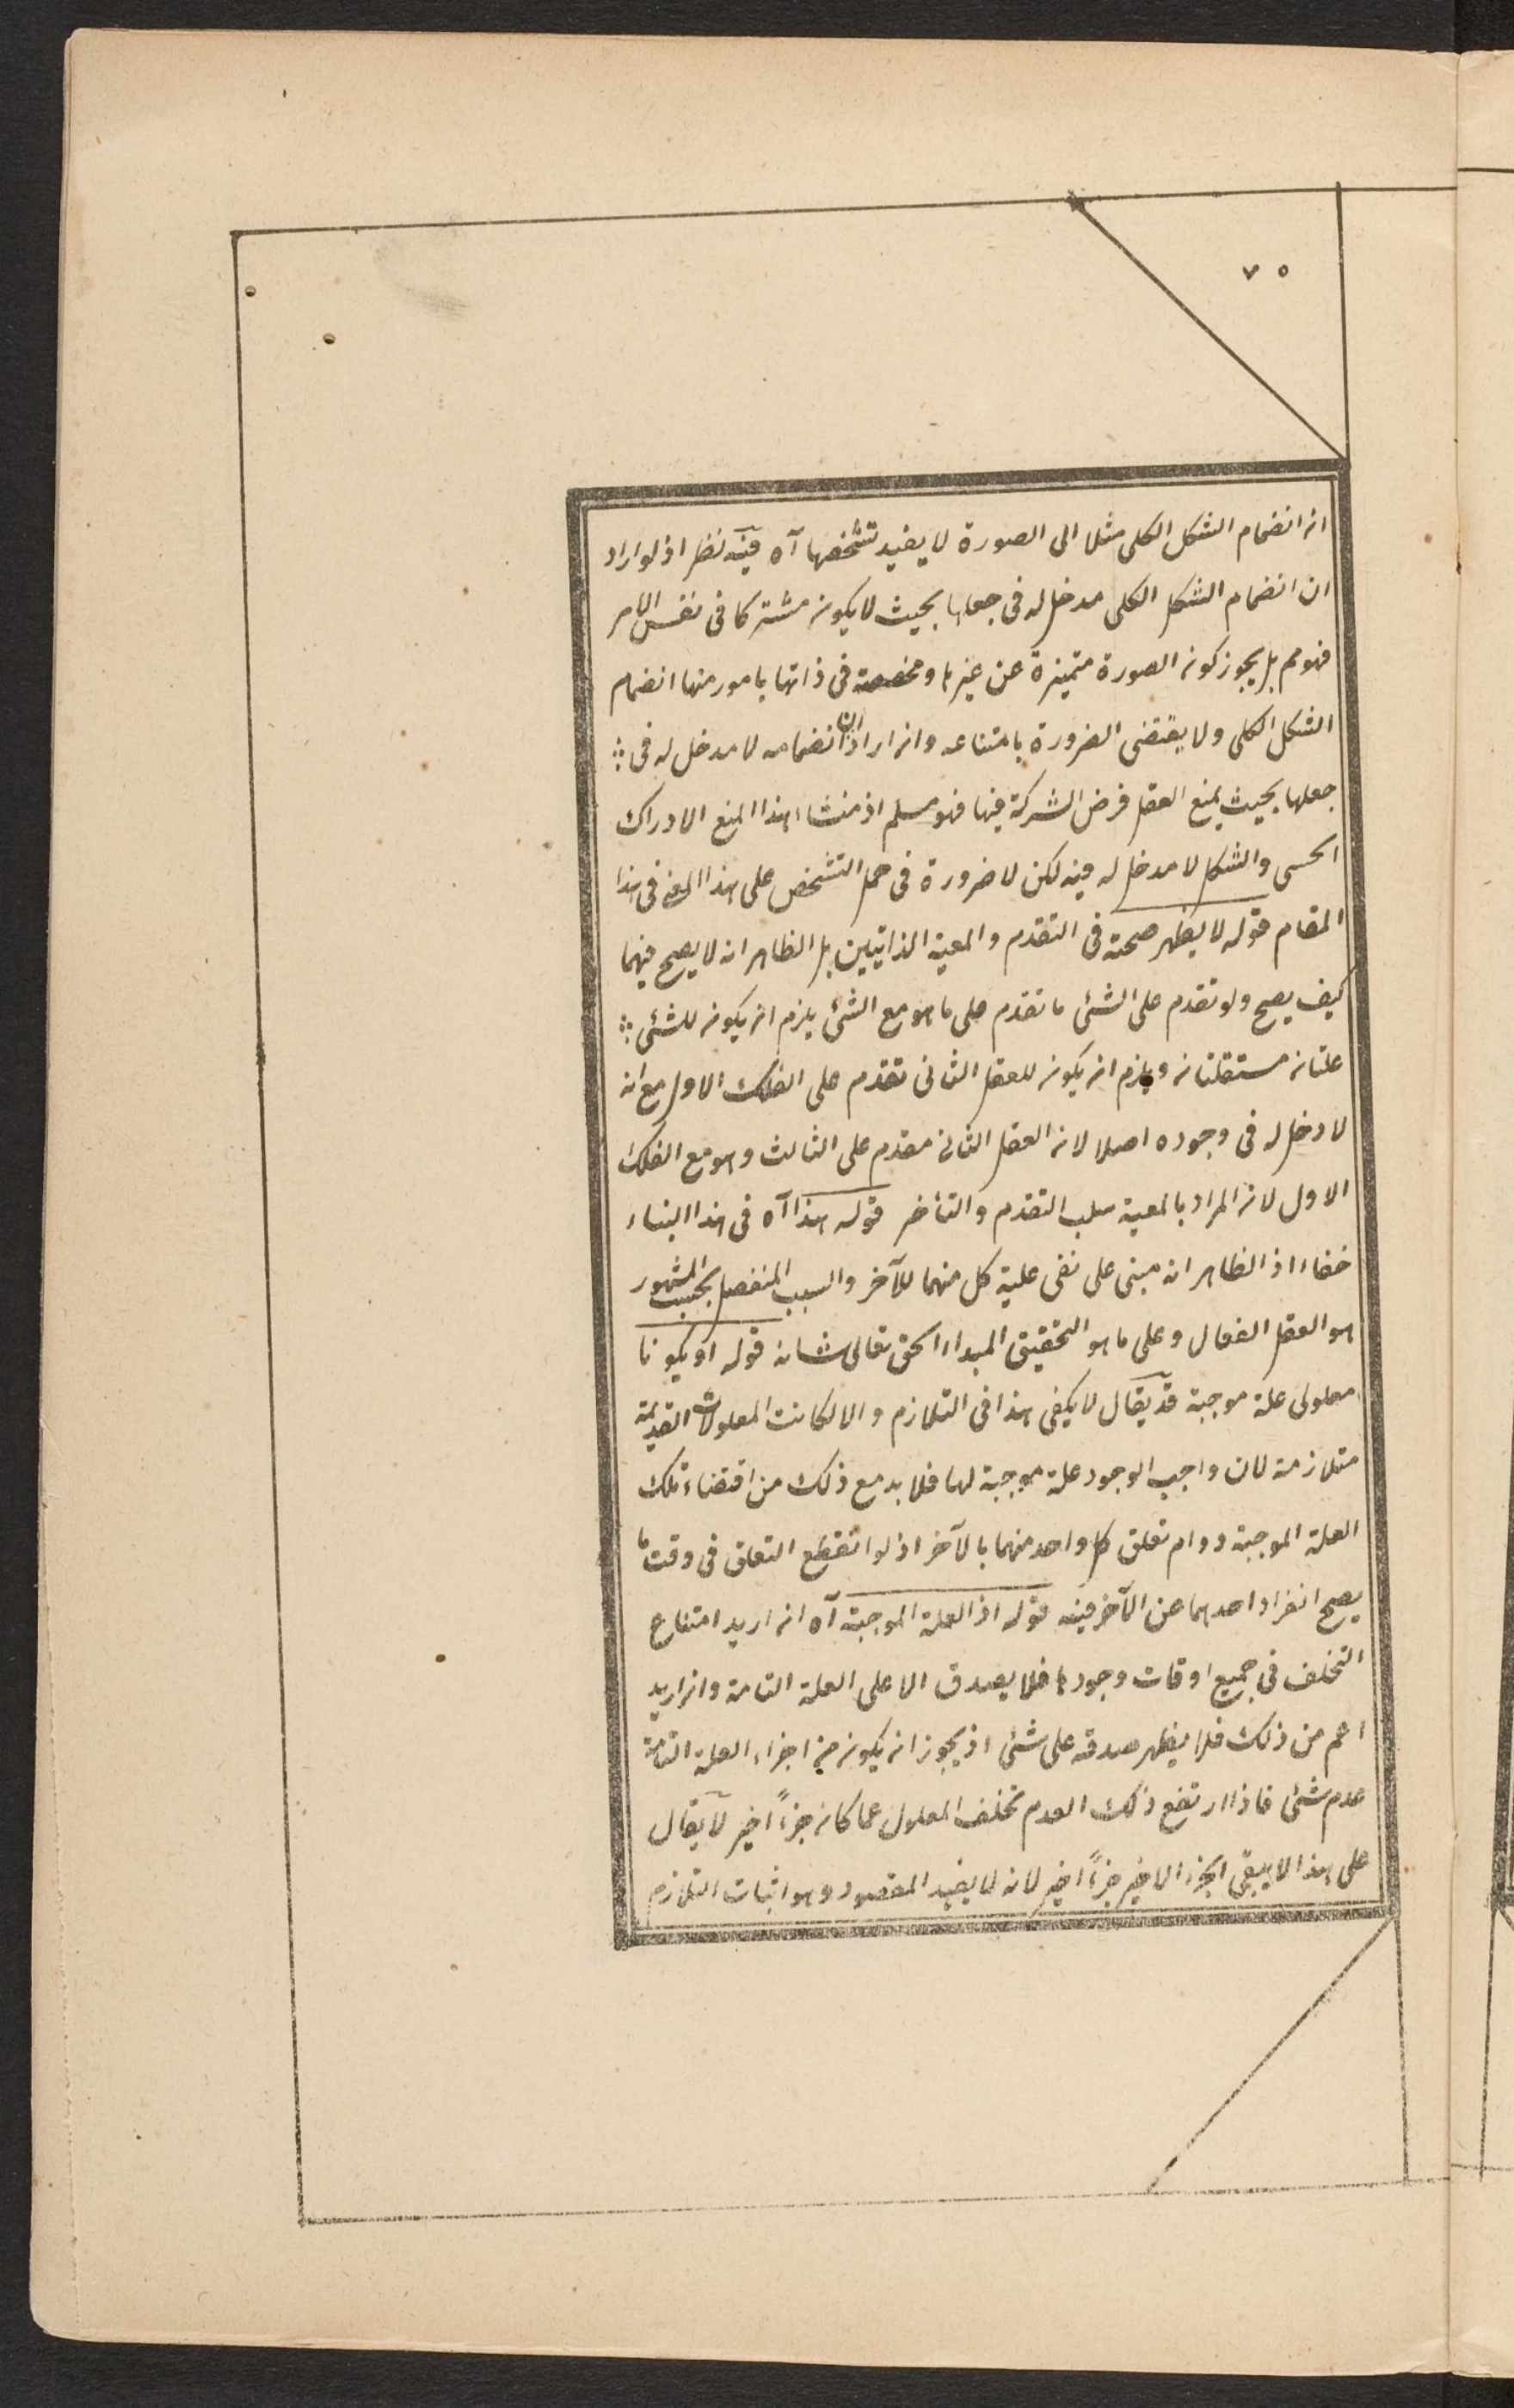 ٧٥
ان انضمام الشكل الكلى مثلا الى الصورة لا يفيد تشخصها آه فيه نظر اذ لو اراد
ان انضمام الشكل الكلى مدخل له فى جعلها بحيث لا يكون مشتركا فى نفس الامر
فهو مم بل يجوز كون الصورة متميزة عن غيرها ومخصصة فى ذاتها بامور منها انضمام
الشكل الكلى ولا يقتضى الضرورة بامتناعه وان اراد ان انضمامه لا مدخل له فى
جعلها بحيث يمنع العقل فرض الشركة فيها فهو مسلم اذ منشاء هذا المنع الادراك
الحسى والشكل لا مدخل له فيه لكن لا ضرورة فى حمل التشخص على هذا المعنى فى هذا
المقام قوله لا يظهر صحته فى التقدم والمعية الذاتيين بل الظاهر انه لا يصح فيهما
كيف يصح ولو تقدم على الشئ ما تقدم على ما هو مع الشئ يلزم ان يكون للشئ
علتان مستقلتان ويلزم ان يكون للعقل الثانى تقدم على الفلك الاول مع انه
لا دخل له فى وجوده اصلا لان العقل الثانى مقدم على الثالث وهو مع الفلك
الاول لان المراد بالمعية سلب التقدم والتأخر قوله هذا آه فى هذا البناء
خفاء اذ الظاهر انه مبنى على نفى علية كل منهما للآخر والسبب المنفصل بحسب المشهور
هو العقل الفعال وعلى ما هو التحقيق المبداء الحق تعالى شانه قوله او يكونا
معلولى علة موجبة قد يقال لا يكفى هذا فى التلازم والا لكانت المعلولات القديمة
متلازمة لان واجب الوجود علة موجبة لها فلا بد مع ذلك من اقتضاء تلك
العلة الموجبة دوام تعلق كل واحد منهما بالآخر اذ لو انقطع التعلق فى وقت ما
يصح انفراد احدهما عن الآخر فيه قوله اذ العلة الموجبة آه ان اريد امتناع
التخلف فى جميع اوقات وجودها فلا يصدق الا على العلة التامة وان اريد
اعم من ذلك فلا يظهر صدقه على شئ اذ يجوز ان يكون من اجزاء العلة التامة
عدم شئ فاذا ارتفع ذلك العدم تخلف المعلول عما كان جزءاً اخير لا يقال
على هذا لا يبقى الجزء الاخير جزءاً اخير لانه لا يفيد المقصود وهو اثبات التلازم